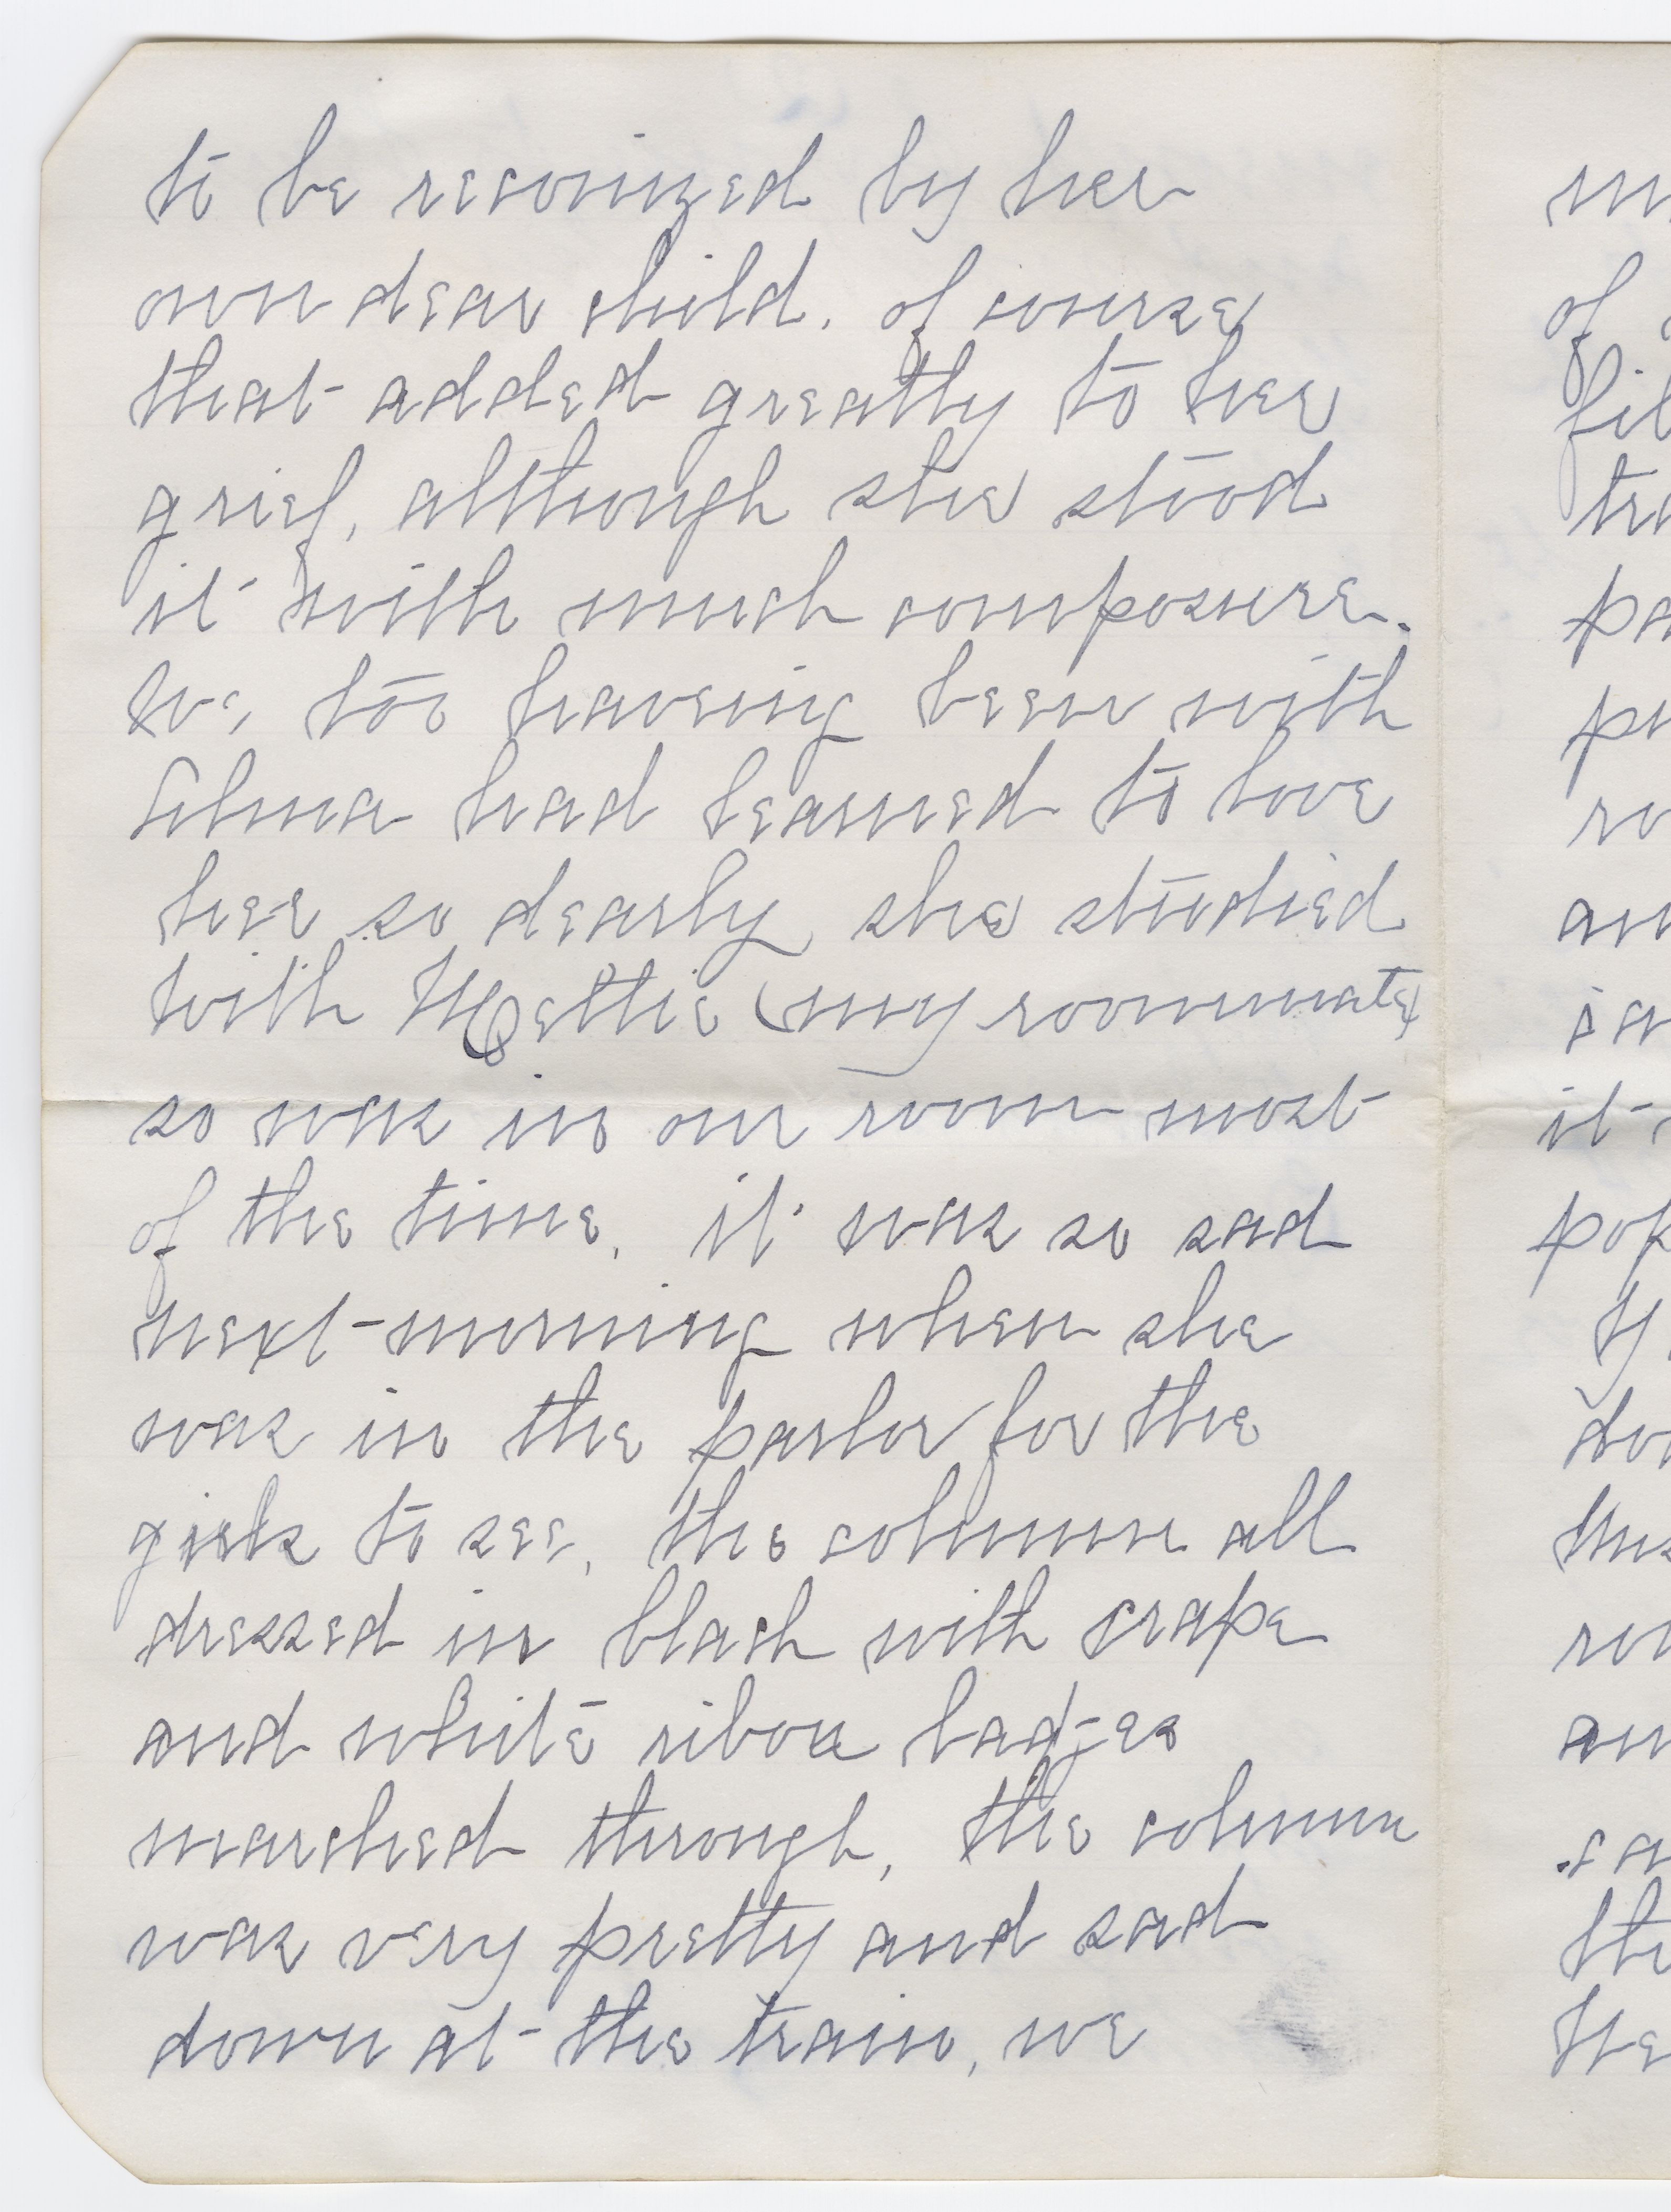 to be reconized by her
own dear child. of course
that added greatly to her
grief, although she stood
it with much composure.
We, too haveing been with
Alma had learned to love
her so dearly she studied
with Mettie (my roommate)
so was in our room most
of the time, it was so sad
next morning when she
was in the parlor for the
girls to see, the column all
dressed in black with crape
and white ribon badges
marched through, the column
was very pretty and sad
down at the train, we